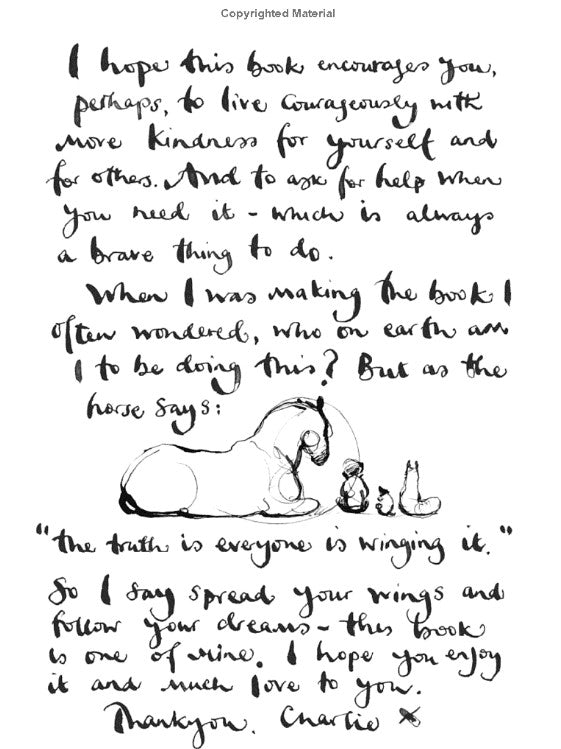 Copyrighted Material
I hope this book encourages you,
perhaps, to live courageously with
more kindness for yourself and
for others. And to ask for help when
you need it – which is always
a brave thing to do.
When I was making the book I
often wondered, who on earth am
I to be doing this? But as the
horse says:
“the truth is everyone is winging it.”
So I say spread your wings and
follow your dreams – this book
is one of mine. I hope you enjoy
it and much love to you.
Thankyou. Charlie x